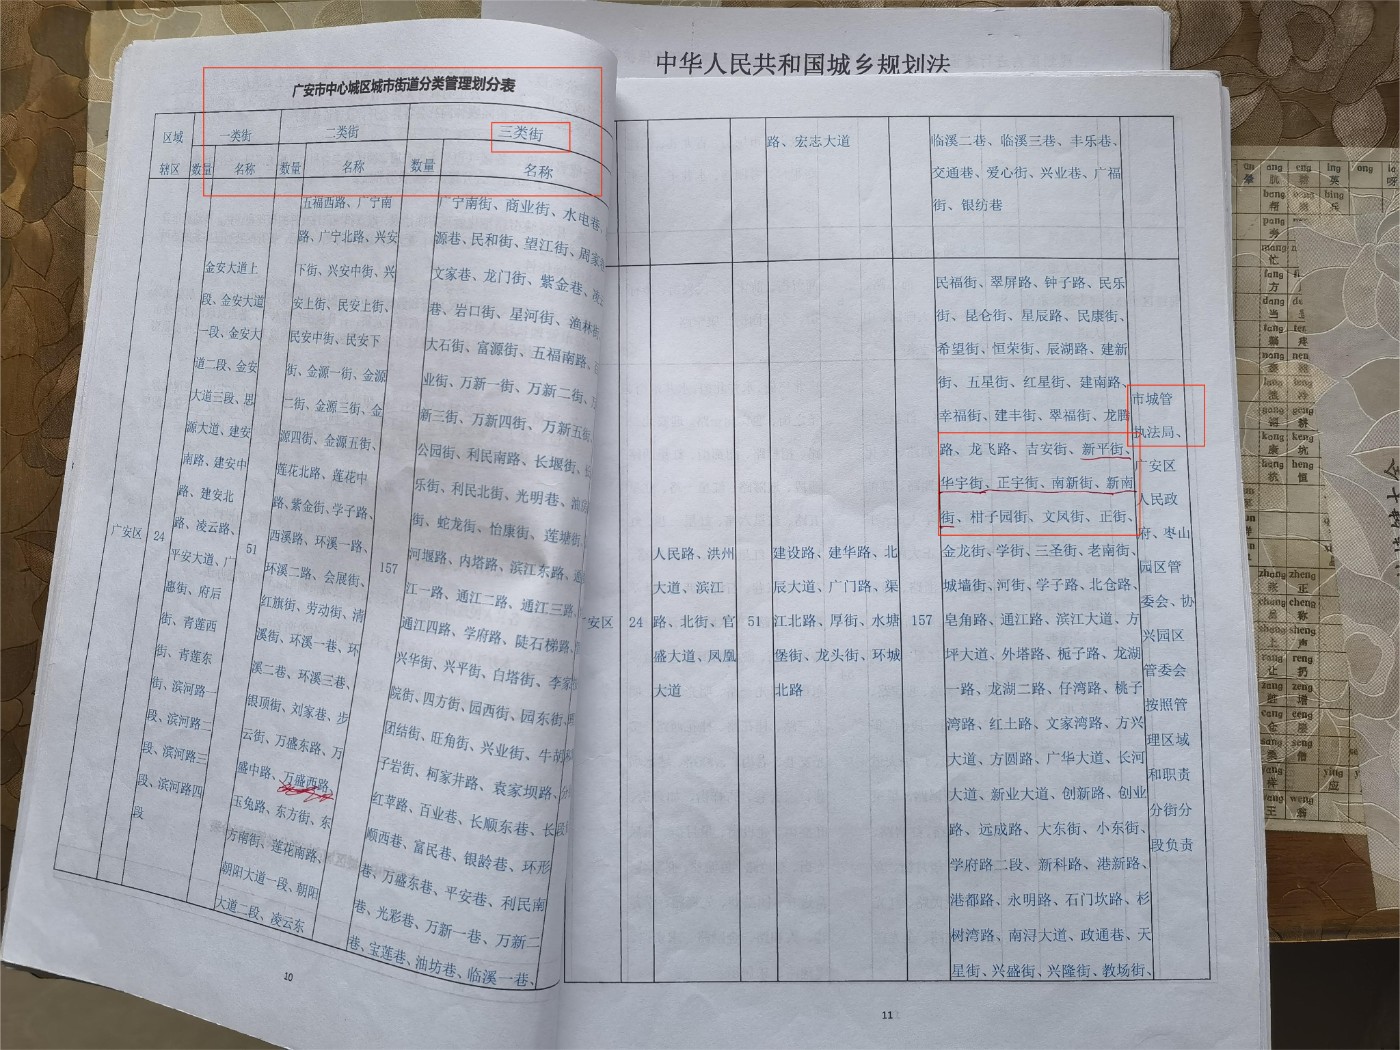 中华人民共和国城乡规划法
广安市中心城区城市街道分类管理划分表
区域 一类街 二类街 三类街
辖区 数量 名称 数量 名称 数量 名称
广安区
24
金安大道上
段、金安大道
一段、金安大
道二段、金安
大道三段、思
源大道、建安
南路、建安中
路、建安北
路、凌云路、
平安大道、广
惠街、府后
街、青莲西
街、青莲东
街、滨河路一
段、滨河路二
段、滨河路三
段、滨河路四
段
51
五福西路、广宁南
路、广宁北路、兴安
下街、兴安中街、兴
安上街、民安上街、
民安中街、民安下
街、金源一街、金源
二街、金源三街、金
源四街、金源五街、
莲花北路、莲花中
路、紫金街、学子路、
西溪路、环溪一路、
环溪二路、会展街、
红旗街、劳动街、清
溪街、环溪一巷、环
溪二巷、环溪三巷、
银顶街、刘家巷、步
云街、万盛东路、万
盛中路、万盛西路、
玉兔路、东方街、东
方南街、莲花南路、
朝阳大道一段、朝阳
大道二段、凌云东
157
广宁南街、商业街、水电巷、
源巷、民和街、望江街、周家
文家巷、龙门街、紫金巷、
巷、岩口街、星河街、渔林街
大石街、富源街、五福南路、
业街、万新一街、万新二街、
新三街、万新四街、万新五街、
公园街、利民南路、长堰街、
乐街、利民北街、光明巷、油
街、蛇龙街、怡康街、莲塘街、
河堰路、内塔路、滨江东路、通
江一路、通江二路、通江三路、
通江四路、学府路、陡石梯路、
兴华街、兴平街、白塔街、李家
院街、四方街、园西街、园东街、
团结街、旺角街、兴业街、牛胡
子岩街、柯家井路、袁家坝路、
红苹路、百业巷、长顺东巷、长
顺西巷、富民巷、银龄巷、环形
巷、万盛东巷、平安巷、利民南
巷、光彩巷、万新一巷、万新二
巷、宝莲巷、油坊巷、临溪一巷、
10
路、宏志大道
临溪二巷、临溪三巷、丰乐巷、
交通巷、爱心街、兴业巷、广福
街、银纺巷
安区
24
人民路、洪州
大道、滨江
路、北街、官
盛大道、凤凰
大道
51
建设路、建华路、北
辰大道、广门路、渠
江北路、厚街、水塘
堡街、龙头街、环城
北路
157
民福街、翠屏路、钟子路、民乐
街、昆仑街、星辰路、民康街、
希望街、恒荣街、辰湖路、建新
街、五星街、红星街、建南路、
幸福街、建丰街、翠福街、龙腾
路、龙飞路、吉安街、新平街、
华宇街、正宇街、南新街、新南
街、柑子园街、文凤街、正街、
金龙街、学街、三圣街、老南街、
城墙街、河街、学子路、北仓路、
皂角路、通江路、滨江大道、方
坪大道、外塔路、栀子路、龙湖
一路、龙湖二路、仔湾路、桃子
湾路、红土路、文家湾路、方兴
大道、方圆路、广华大道、长河
大道、新业大道、创新路、创业
路、远成路、大东街、小东街、
学府路二段、新科路、港新路、
港都路、永明路、石门坎路、杉
树湾路、南浔大道、政通巷、天
星街、兴盛街、兴隆街、教场街、
市城管
执法局、
广安区
人民政
府、枣山
园区管
委会、协
兴园区
管委会
按照管
理区域
和职责
分街分
段负责
11